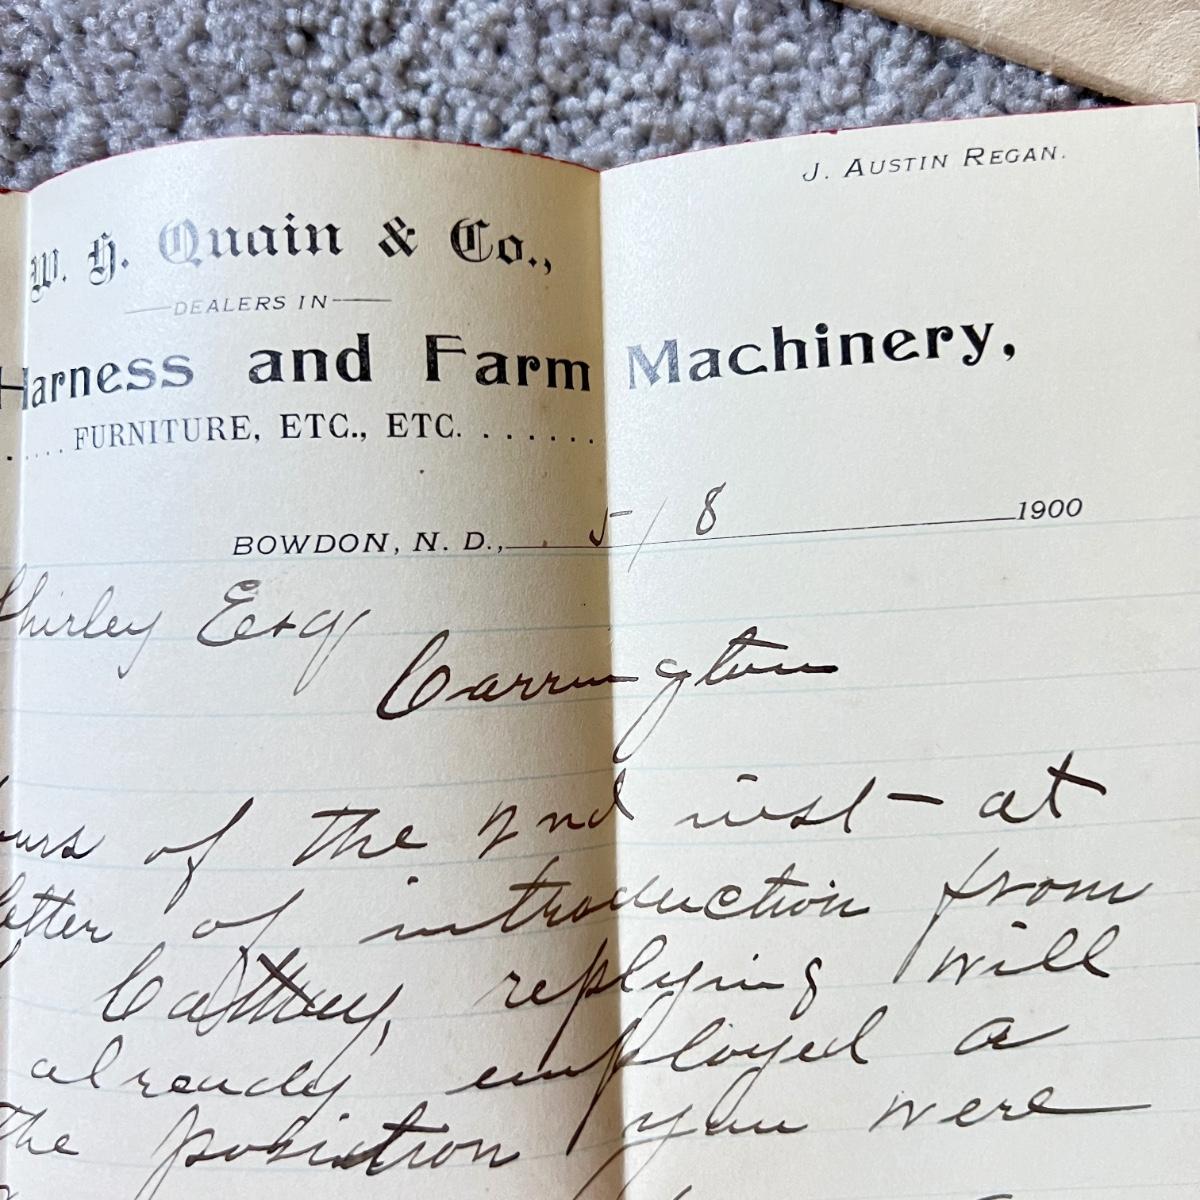 J. AUSTIN REGAN.
W. H. Quain & Co.,
DEALERS IN
Harness and Farm Machinery,
..... FURNITURE, ETC., ETC. .......
BOWDON, N. D., 5/8 1900
Shirley Esq
Carrington
of the 2nd inst - at
letter of introduction from
replying will
already employed a
the posistion you were